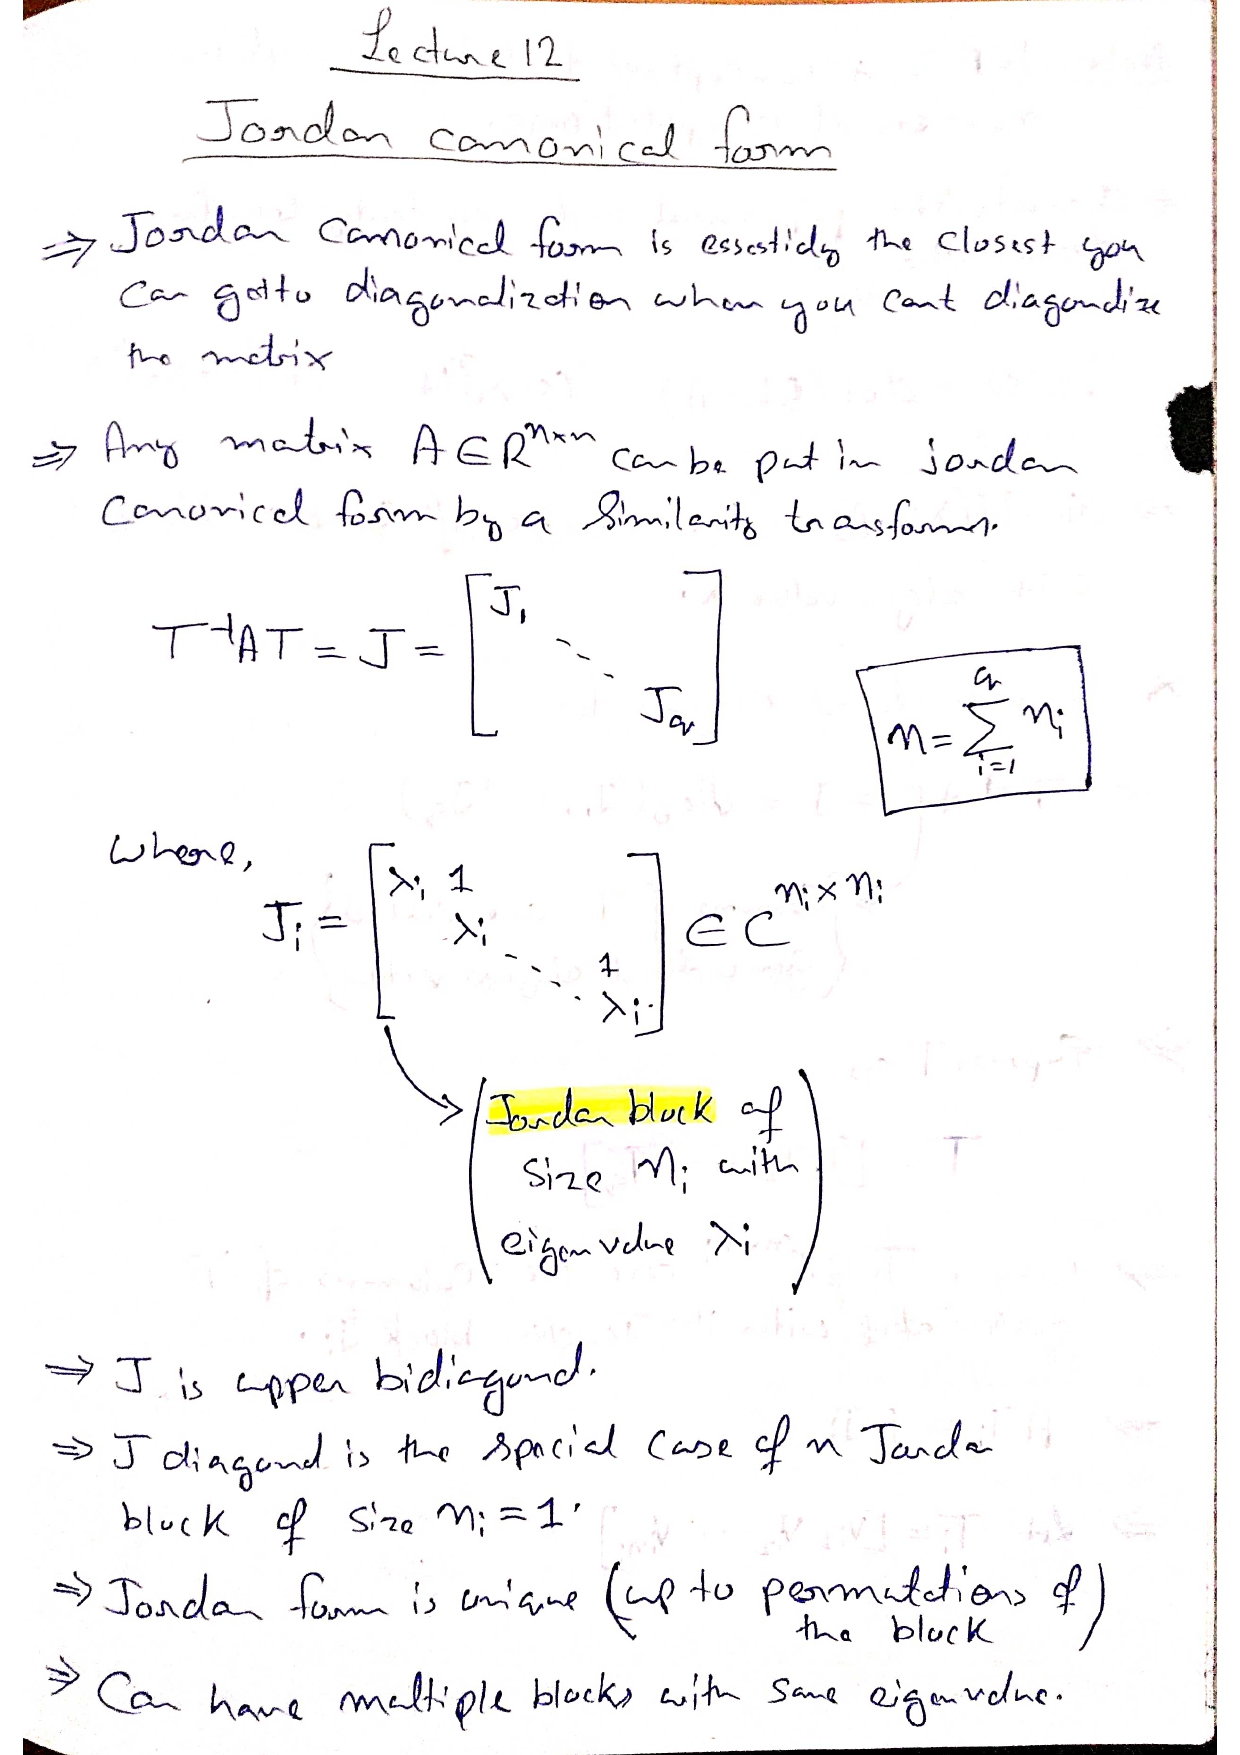 Lecture 12
Jordan canonical form
⇒ Jordan Canonical form is essestidy the closest you
can get to diagonaliztion when you cant diagondize
the matrix
⇒ Any matrix A ∈ R^{n×n} can be put in jordan
canonical form by a similarity transforms.
T^{-1}AT = J = [ J_1 ⋱ J_q ]
n = Σ_{i=1}^{q} n_i
where,
J_i = [ λ_i 1 λ_i ⋱ 1 λ_i ] ∈ C^{n_i × n_i}
(Jordan block of
size n_i with
eigenvalue λ_i)
⇒ J is upper bidiagonal.
⇒ J diagonal is the special case of n Jordan
block of size n_i = 1.
⇒ Jordan form is unique (up to permutations of
the block)
⇒ Can have multiple blocks with same eigenvalue.